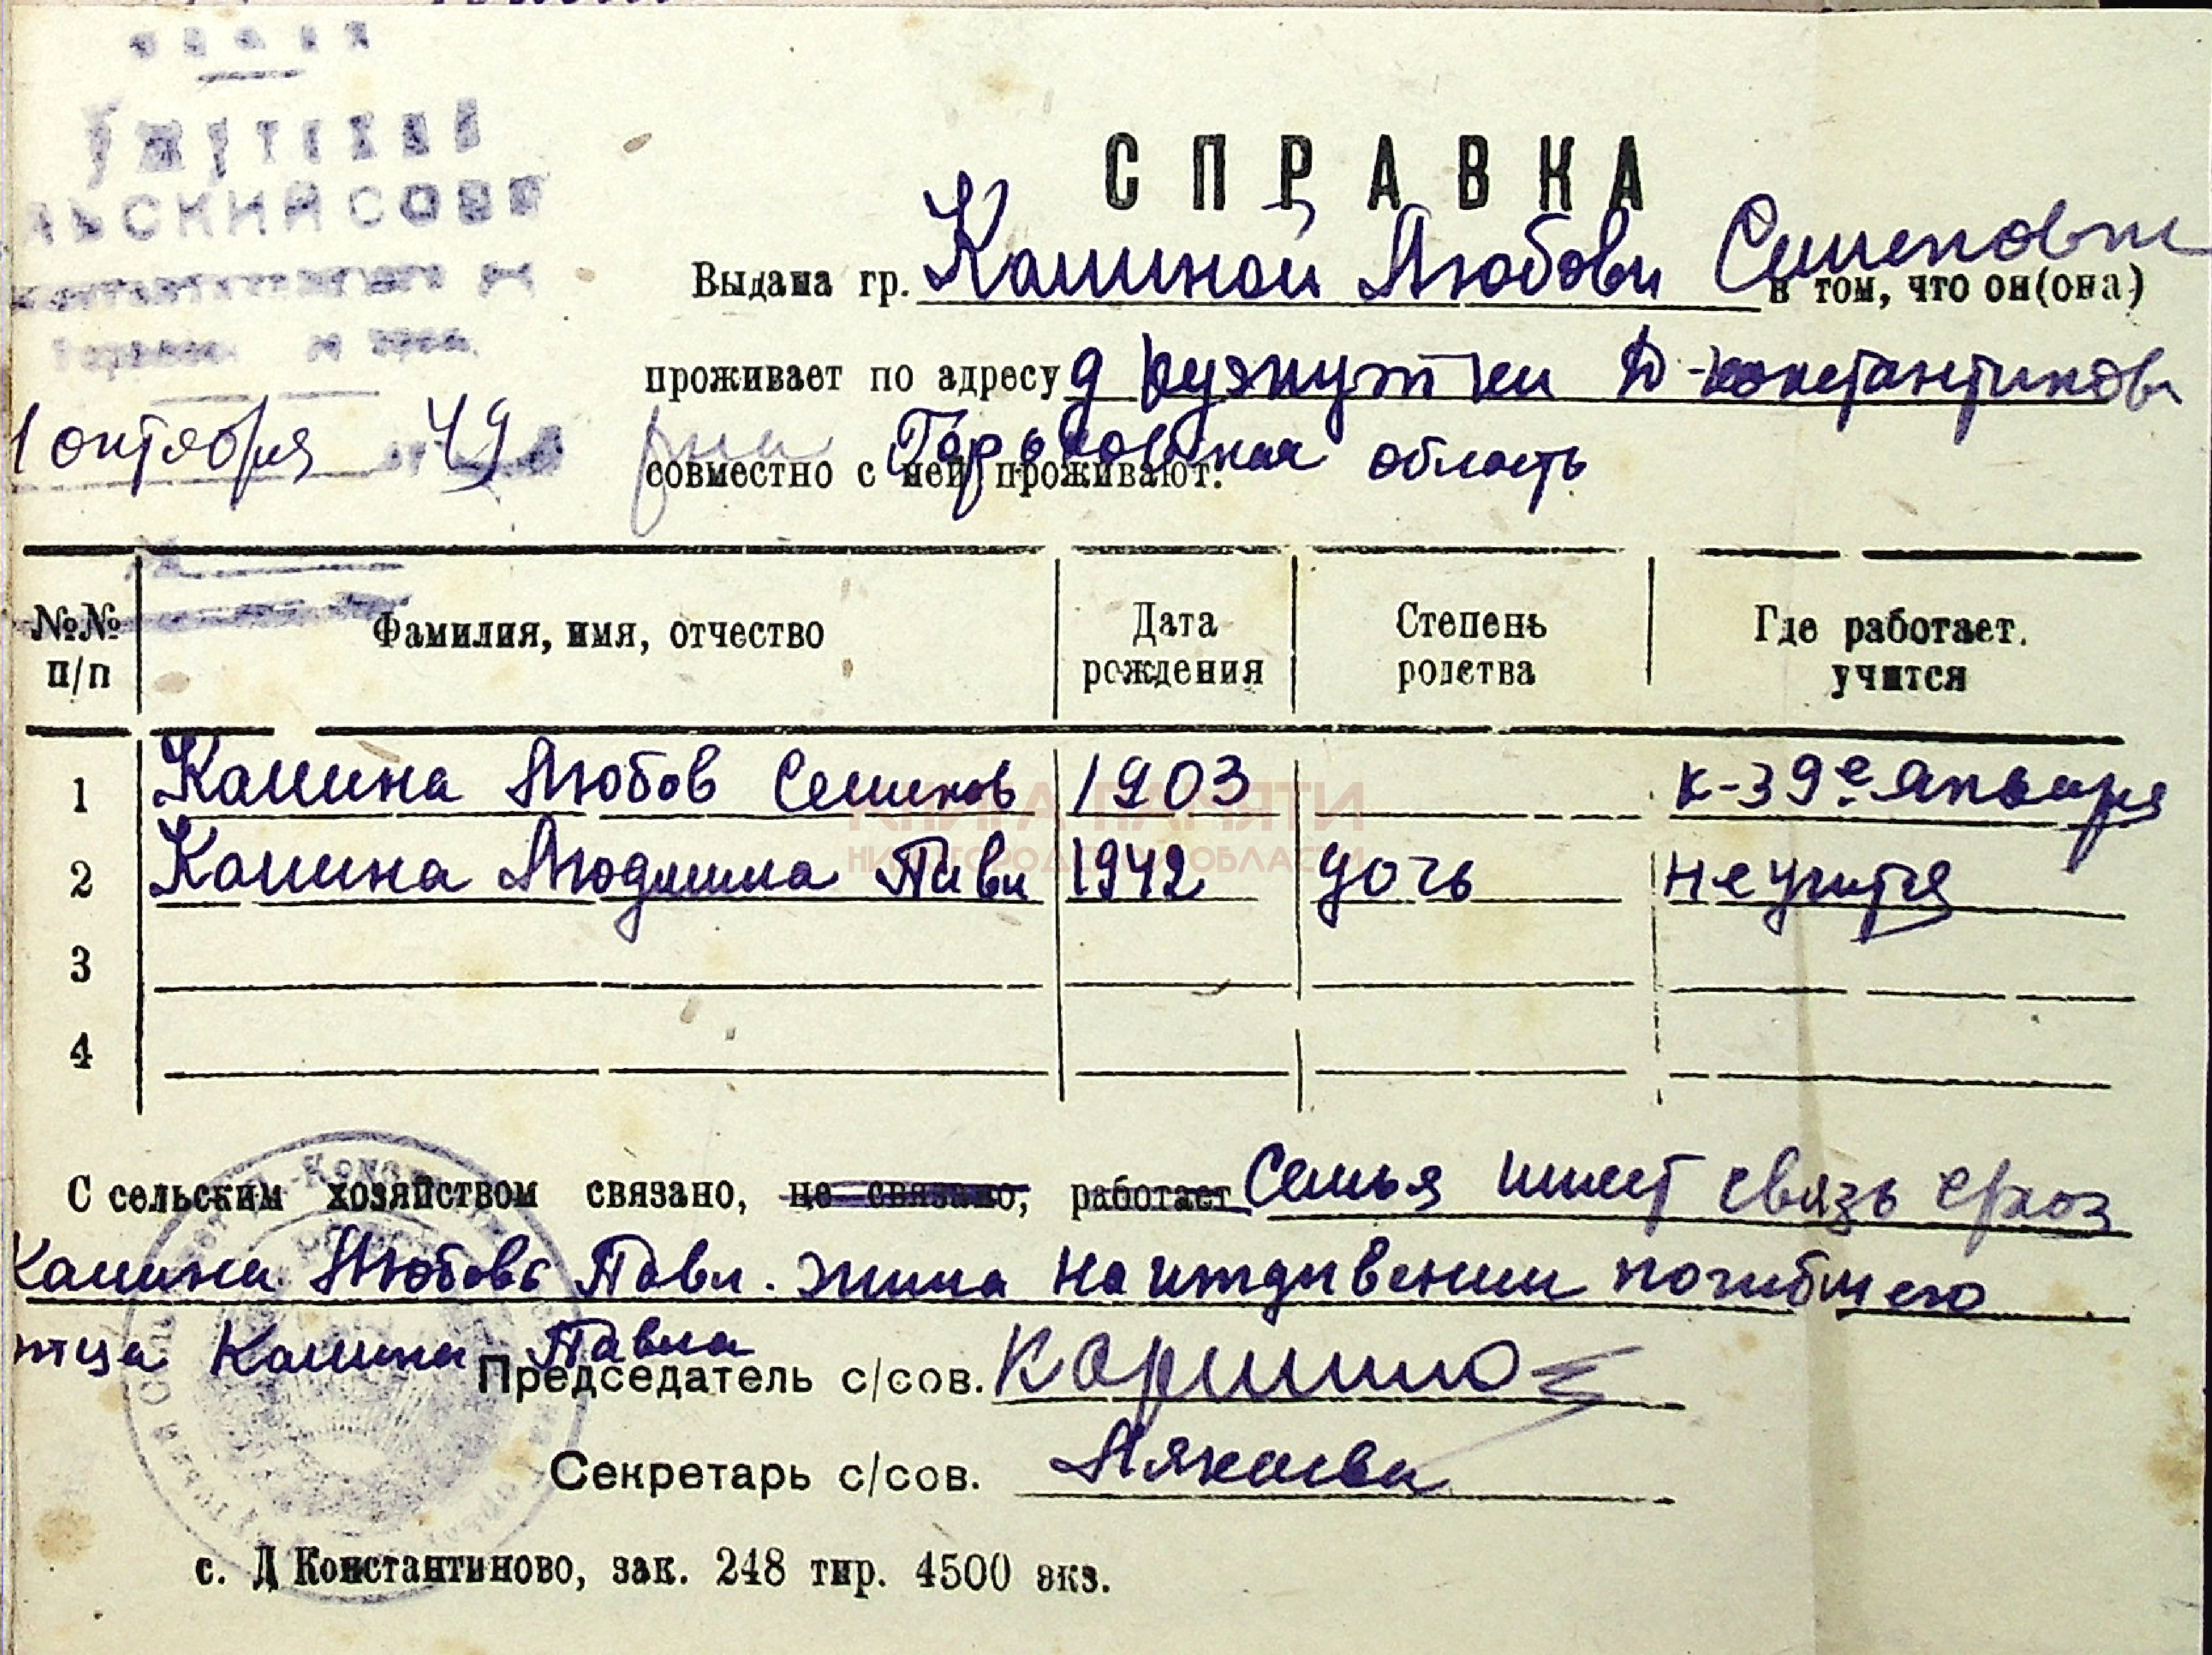 СПРАВКА
Выдана гр. Калиной Любови Семеновн
в том, что он(она)
проживает по адресу д Ружнутки Д-Константинов
рна Горьковская область
1 октября 49
совместно с ней проживают:
№№ п/п Фамилия, имя, отчество Дата рождения Степень родства Где работает. учится
1 Калина Любов Семенов 1903 к-з 9е Января
2 Калина Людмила Павл 1942 дочь не учится
3
4
С сельским хозяйством связано, не связано, работает Семья имеет связь с
Калина Любовь Павл. жила на иждивении погибшего
отца Калина Павла
Председатель с/сов.
Секретарь с/сов.
с. Д Константиново, зак. 248 тир. 4500 экз.
КНИГА ПАМЯТИ
НИЖЕГОРОДСКОЙ ОБЛАСТИ